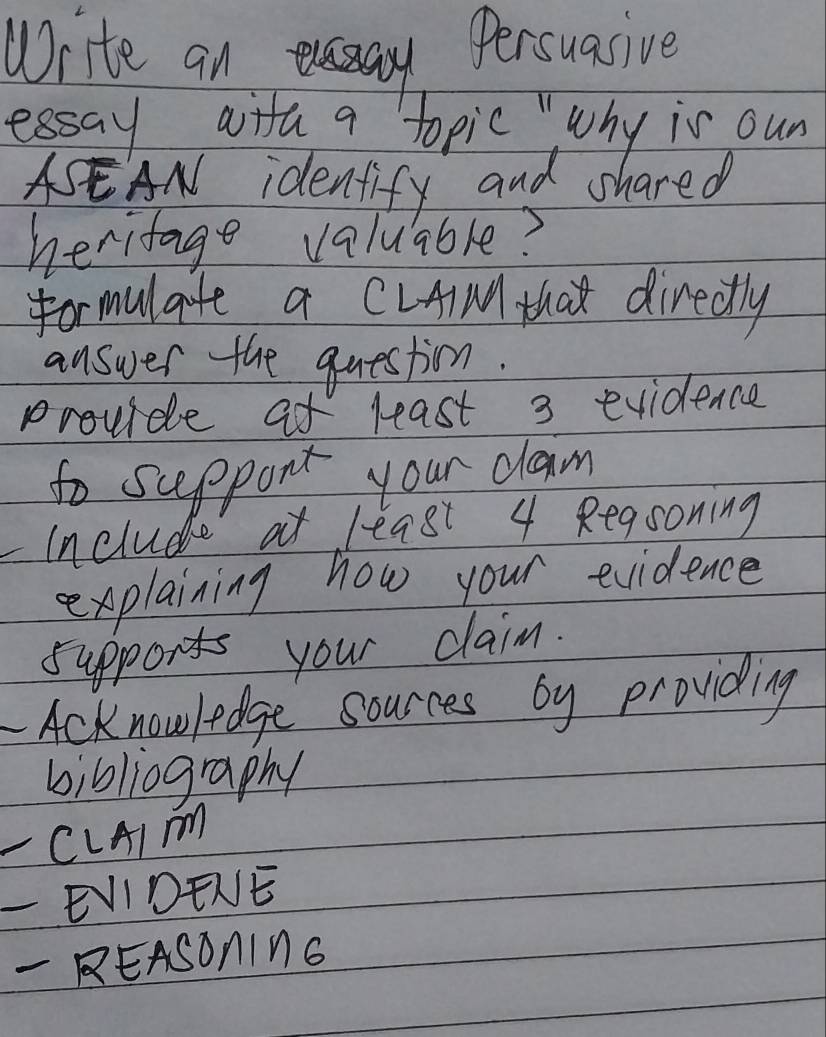 Write an essay Persuasive
essay with a topic "why is our
ASEAN identify and shared
heritage valuable?
Formulate a CLAIM that directly
answer the question.
Provide at least 3 evidence
to support your claim
- Include at least 4 Reasoning
explaining how your evidence
supports your claim.
- Acknowledge sources by providing
bibliography
- CLAIM
- EVIDENE
- REASONING